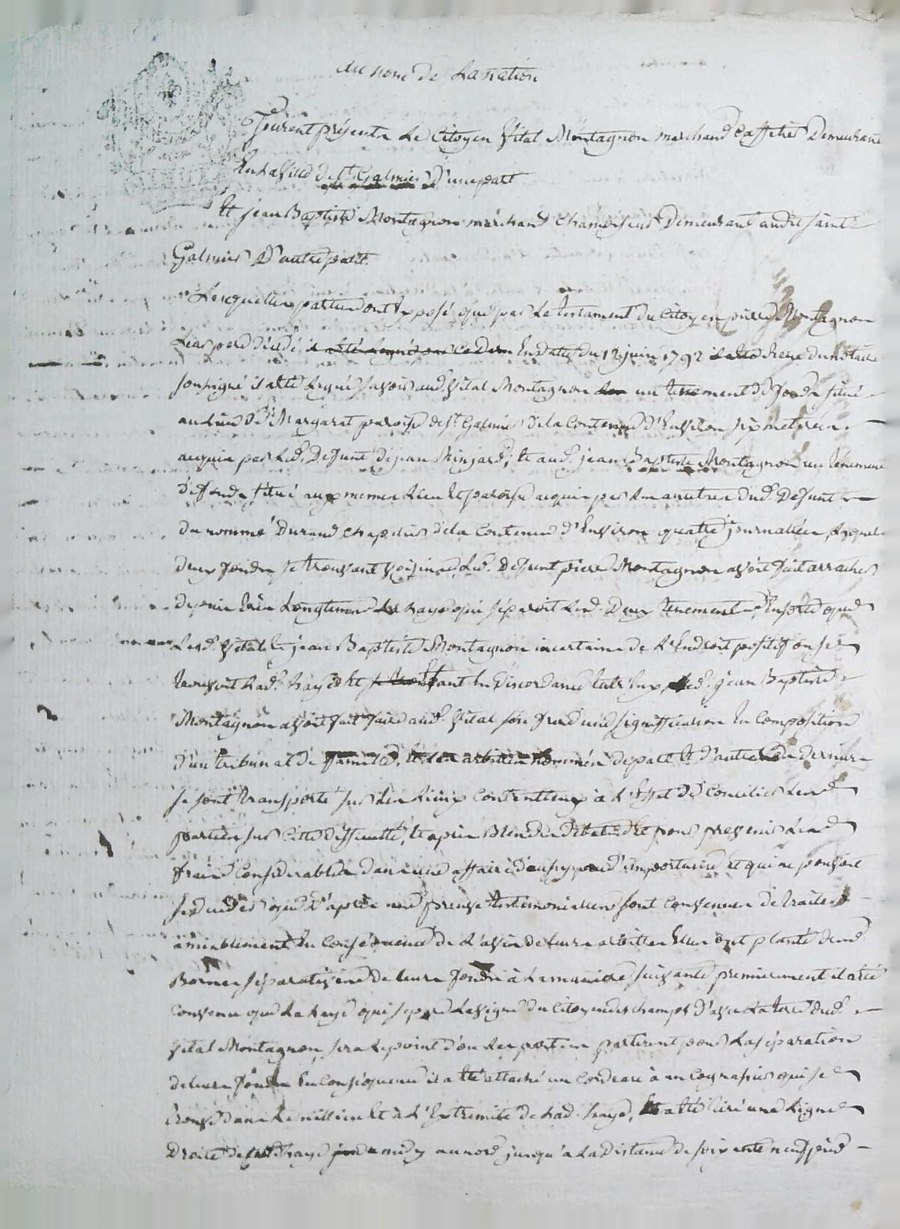 au nom de la nation
Furent présents le Citoyen Vital Montagnon marchand Demeurant
En la ville de St Galmier D'une part
Et jean Baptiste Montagnon marchand Chamoiseur Demeurant audit saint
Galmier D'autre part.
Lesquelles parties ont Exposé, que par le testament du Citoyen pierre Montagnon
leur pere décédé En datte du 12 juin 1792 Receu du notaire
soussigné il a été légué savoir aud. Vital Montagnon un tenement de fonds situé
au lieu de Margarat paroisse de St Galmier de la Contenue d'Environ six metérées
acquis par led. Defunt de jean ; et aud. jean Baptiste Montagnon un tenement
de fonds situé aux memes lieu et paroisse acquis par led. Defunt
du nommé Durand de la Contenue d'Environ quatre journalées, lesquels
deux fonds se trouvant voisins, led. Defunt pierre Montagnon avoit fait arracher
depuis bien longtems la haye qui séparoit lesd. Deux tenements, Ensorte que
lesd. Vital et jean Baptiste Montagnon incertains de l'Endroit positif où se
trouvoit lad. haye et étant En Discordance Entr'Eux, led. jean Baptiste
Montagnon avoit fait faire aud. Vital son frere une signification En Composition
d'un tribunal de famille, et les arbitres nommés de part et d'autre ces derniers
se sont transportés sur les lieux Contentieux à l'Effet de Concilier lesd.
parties sur cette difficulté, et après Bien des Débats et pour prevenir les
frais Considérables dans une affaire d'aussy peu d'importance et qui ne pouvoit
se decider que d'après une preuve testimoniale sont Convenus de traiter
amiablement En Conséquence de l'avis de leurs arbitres Elles ont planté des
Bornes séparatives de leurs fonds à la maniere suivante premierement il a été
Convenu que la haye qui separe la vigne du Citoyen deschamps d'avec la terre dud.
Vital Montagnon, sera le point d'où les parties partiront pour la séparation
de leurs fonds En Conséquence il a été attaché un Cordeau à un Cognassier qui se
trouve dans le millieu et à l'Extremité de lad. haye, Et a été tiré une ligne
Droite de lad. haye midy au nord jusqu'à la distance de soixante neuf pieds